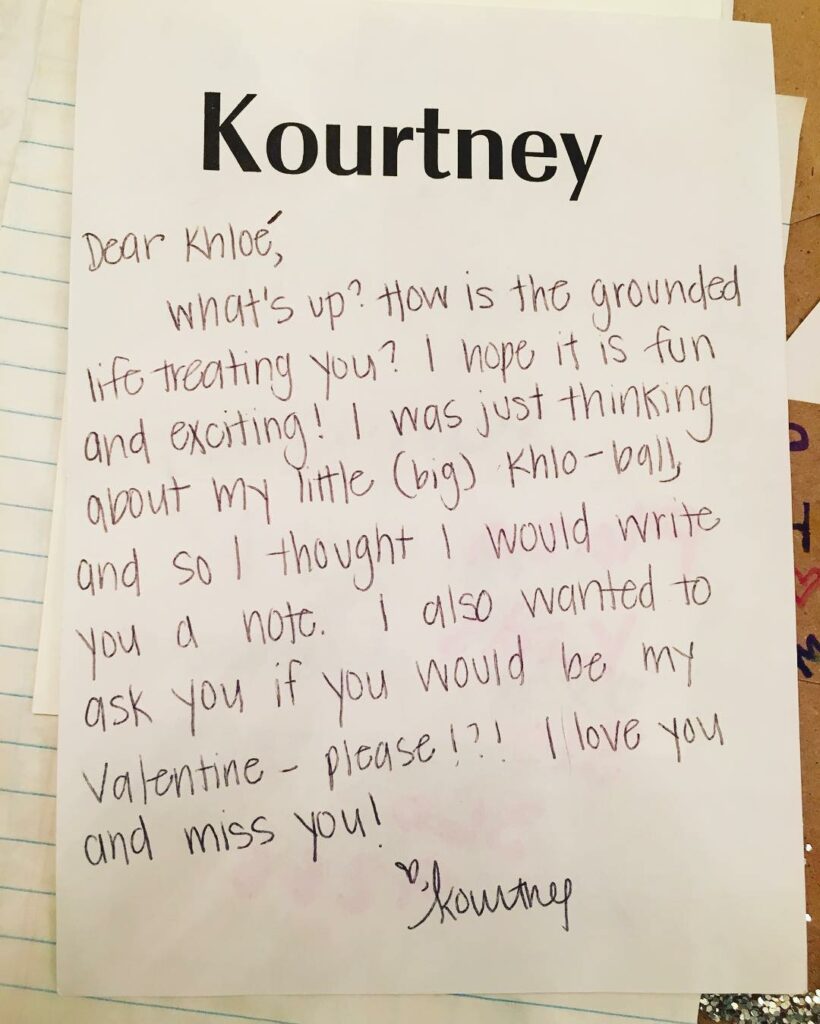 Kourtney
Dear Khloé,
What's up? How is the grounded
life treating you? I hope it is fun
and exciting! I was just thinking
about my little (big) Khlo-ball,
and so I thought I would write
you a note. I also wanted to
ask you if you would be my
Valentine - please!?! I love you
and miss you!
♡, Kourtney